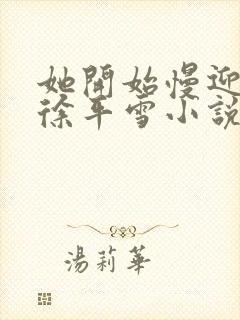 她開始慢迎
徐年雪小說
湯莉華